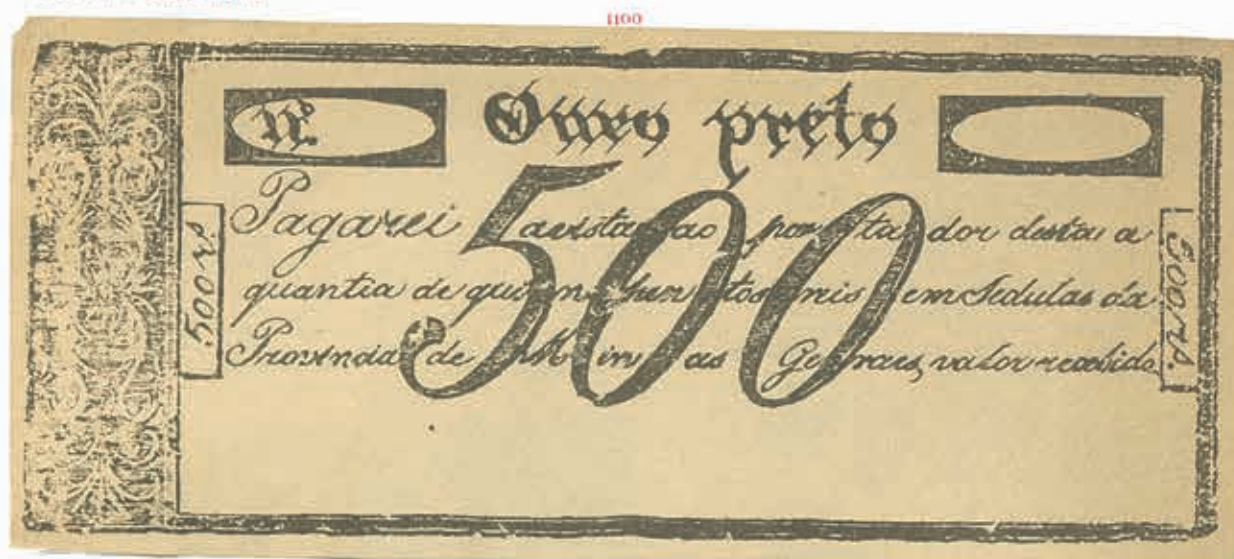 1100
Nº.
Ouro preto
500
500 rs.
500 rs.
Pagarei a vista ao portador desta a
quantia de quinhentos reis em Sedulas da
Provincia de Minas Geraes, valor recebido